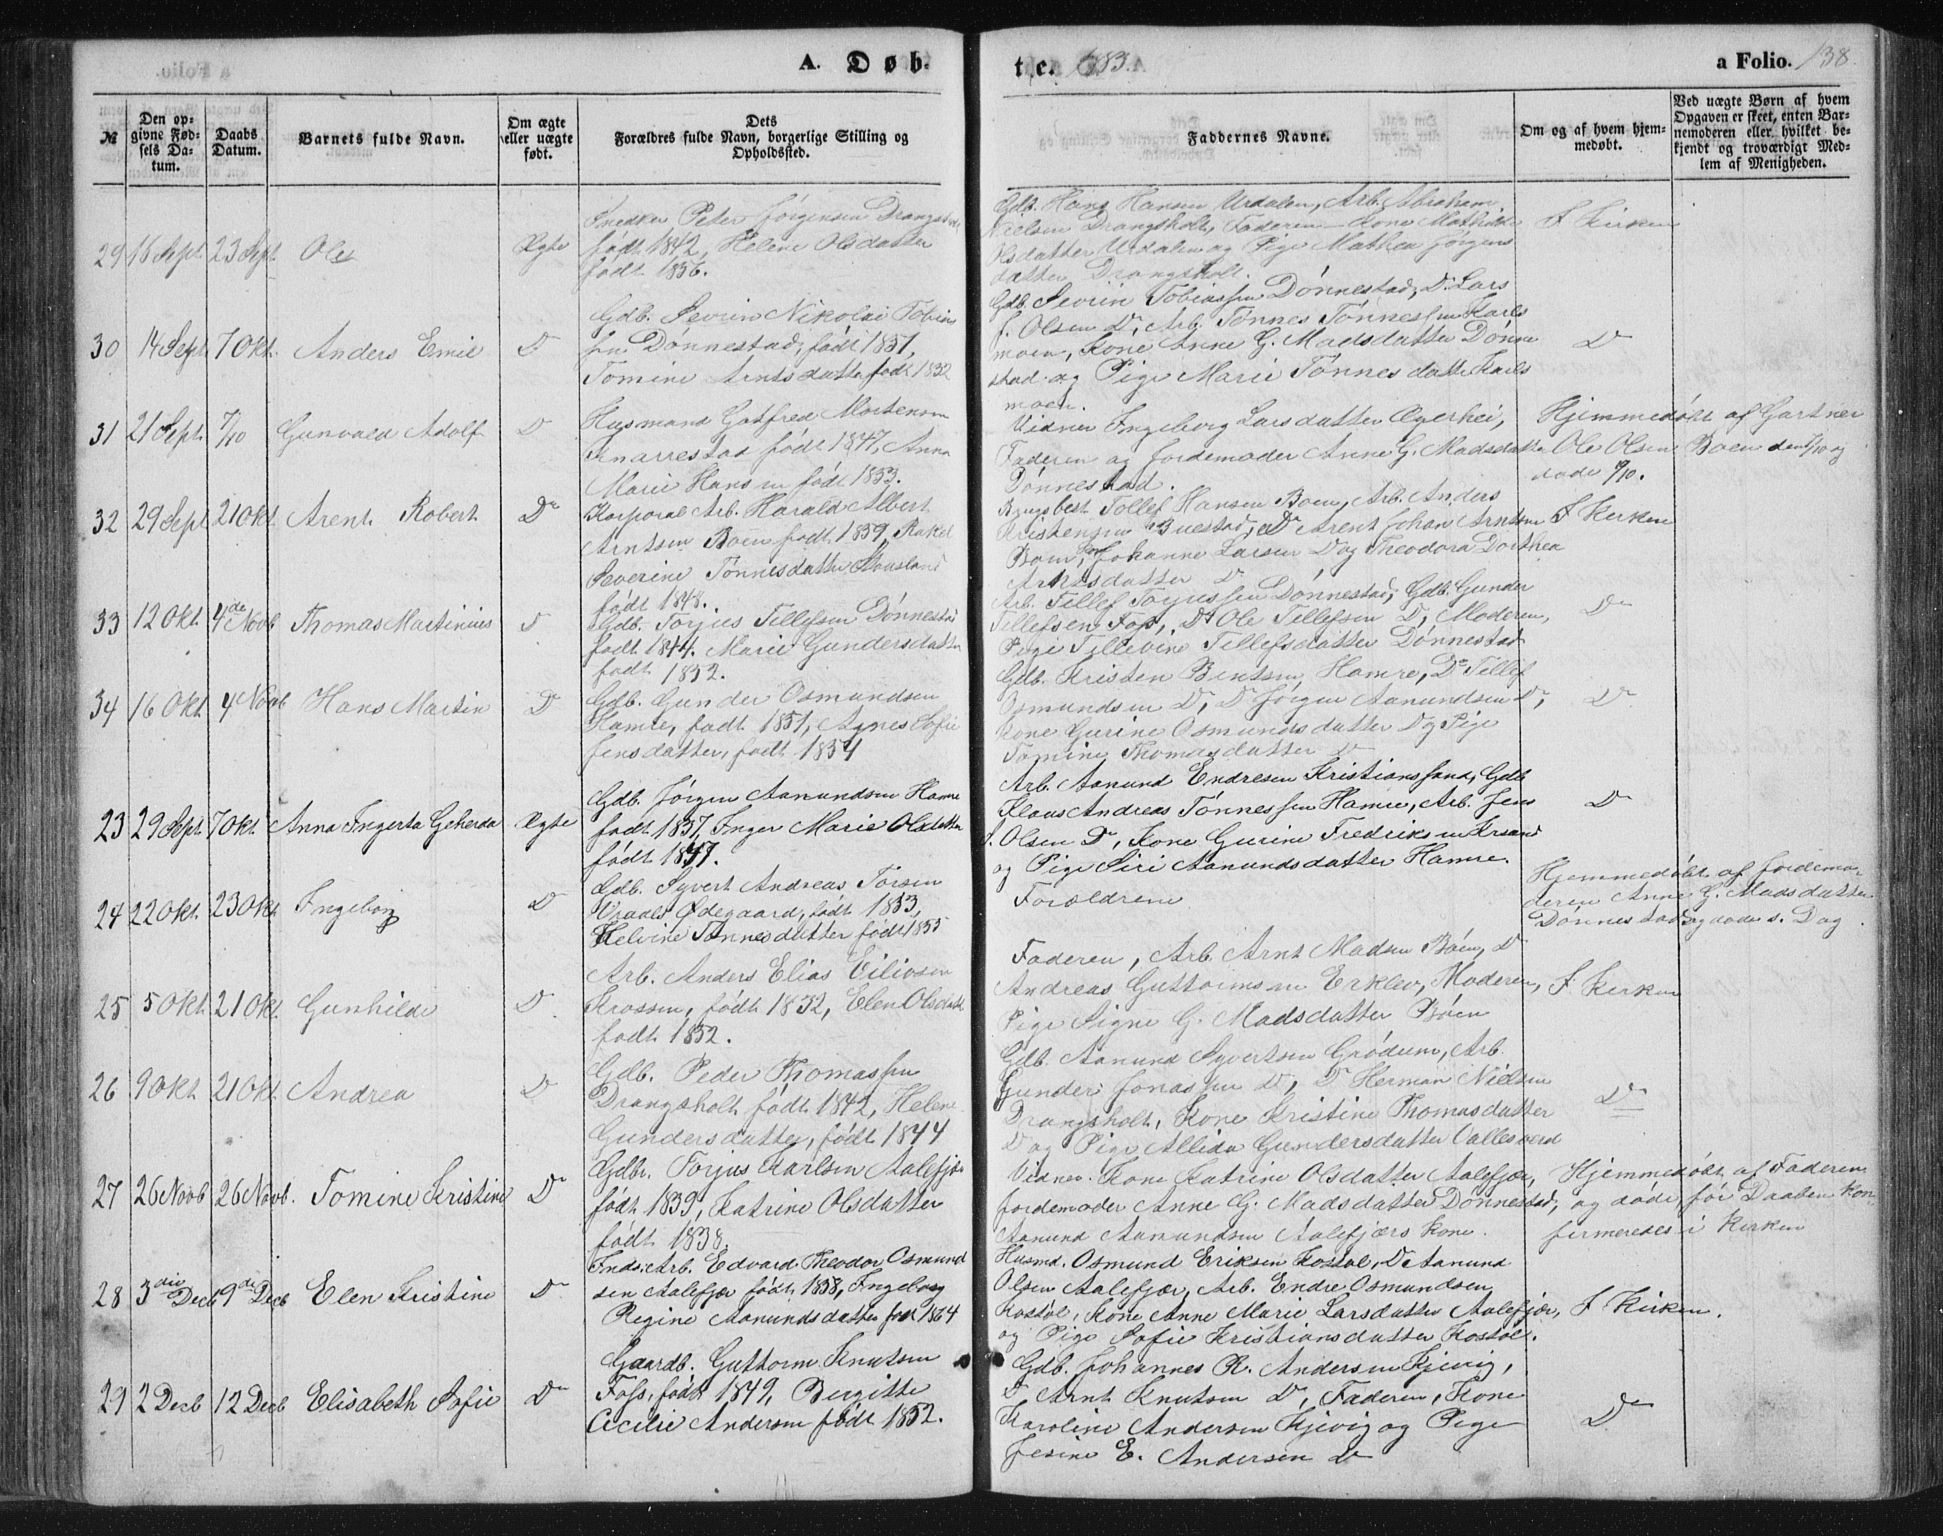 A. Døbte. 1883.
a Folio. 138.
№
Den opgivne Fødsels Datum.
Daabs Datum.
Barnets fulde Navn.
Om ægte eller uægte født.
Dets Forældres fulde Navn, borgerlige Stilling og Opholdssted.
Faddernes Navne.
Om og af hvem hjemmedøbt.
Ved uægte Børn af hvem Opgaven er skeet, enten Barnemoderen eller hvilket bekjendt og troværdigt Medlem af Menigheden.
29 16 Sept 23 Sept Ole Ægte
Snedker Peter Jørgensen
født 1842, Helene Olsdatter
født 1856.
Gdb. Hans Hansen Urdalen, Arb. Abraham
Nielsen Drangsholt, Faderen, Kone Mathilde
Olsdatter Urdalen og Pige Mathea Jørgens
datter Drangsholt.
I Kirken
30 14 Sept 7 Okt. Anders Emil Do
Gdb. Severin Nikolai Tobias
sen Dønnestad, født 1851,
Tomine Arntsdatter født 1852
Gdb. Severin Tobiassen Dønnestad, Do Lars
J. Olsen Do, Arb. Tønnes Tønnessen Karls
moen, Kone Anne G. Madsdatter Dønne
stad og Pige Marie Tønnesdatter Karls
moen.
Do
31 21 Sept. 7/10 Gunvald Adolf Do
Husmand Gotfred Mortensen
født 1847, Anna
Marie Hansen født 1853.
Vidner Ingeborg Larsdatter Ægerhei,
Faderen og Jordemoder Anne G. Madsdatter
Dønnestad.
Hjemmedøbt af Gartner
Ole Olsen Boen den
døde 9/10.
32 29 Sept 21 Okt. Arent Robert Do
Korporal Arb. Harald Albert
Arntsen Boen født 1859, Rakel
Severine Tønnesdatter
født 1848.
Tollef Hansen Boen, Arb. Anders
Kristensen Buestad, Do Arent Johan Arntsen
Boen, Johanne Larsen Do og Theodora Dorthea
Arntsdatter Do
I Kirken
33 12 Okt. 4de Novb Thomas Martinius Do
Gdb. Torjus Tellefsen Dønnestad
født 1844. Marie Gundersdatter
født 1852.
Arb. Tellef Torjussen Dønnestad, Gdb. Gunder
Tellefsen Foss, Do Ole Tellefsen Do, Moderen,
Pige Tellevine Tellefsdatter Dønnestad
Do
34 16 Okt 4 Novb Hans Martin Do
Gdb. Gunder Osmundsen
Hamre, født 1851, Agnes Sofie
Jensdatter, født 1854
Gdb. Kristen Bentsen Hamre, Do Tellef
Osmundsen Do, Do Jørgen Aanundsen Do,
Kone Gurine Osmundsdatter Do og Pige
Tomine Thomasdatter Do
Do
23 29 Sept. 7 Okt. Anna Ingerta Geherda Ægte
Gdb. Jørgen Aanundsen Hamre
født 1857, Inger Marie Olsdatter
født 1857.
Arb. Aanund Endresen Kristianssand, Gdb
Klaus Andreas Tønnessen Hamre, Arb. Jens
Olsen Do, Kone Gurine Fredriksen Krsand
og Pige Siri Aanundsdatter Hamre.
Do
24 22 Okt. 23 Okt. Ingeborg Do
Gdb. Syvert Andreas Torsen
Vraals Ødegaard, født 1853,
Helvine Tønnesdatter født 1855
Forældrene
Hjemmedøbt af Jordemo
deren Anne G. Madsdatter
Dønnestad og døde s. Dag.
25 5 Okt. 21 Okt. Gunhilde Do
Arb. Anders Elias Eilivsen
Krossen, født 1852, Elen Olsdatt
født 1852.
Faderen, Arb. Arnt Madsen Bøen, Do
Andreas Guttormsen Erklev, Moderen,
Pige Signe G. Madsdatter Bøen
I Kirken
26 9 Okt 21 Okt. Andrea Do
Gdb. Peder Thomassen
Drangsholt født 1842, Helene
Gundersdatter, født 1844
Gdb. Aanund Syvertsen Grødum, Arb.
Gunder Jonassen Do, Do Herman Nielsen
Drangsholt, Kone Kristine Thomasdatter
Do og Pige Allida Gundersdatter Vallesværd
Do
27 26 Novb 26 Novb. Tomine Kristine Do
Gdbr. Torjus Karlsen Aalefjær
født 1839, Katrine Olsdatter
født 1838.
Vidner. Kone Katrine Olsdatter Aalefjær,
Jordemoder Anne G. Madsdatter Dønnestad,
Aanund Aanundsen Aalefjærs kone.
Hjemmedøbt af Faderen
og døde, før Daaben kon
firmeredes i Kirken
28 3die Decb 9de Decb Elen Kristine Do
Inds. Arb. Edvard Theodor Osmund
sen Aalefjær født 1858, Ingeborg
Regine Aanundsdatter født 1864
Husmd. Osmund Eriksen Kostøl, Do Aanund
Olsen Aalefjær, Arb. Endre Osmundsen
Kostøl, Kone Anne Marie Larsdatter Aalefjær,
og Pige Sofie Kristiansdatter Kostøl.
I Kirken.
29 2 Decb 12 Decb Elisabeth Sofie Do
Gaardb. Guttorm Knutsen
Foss, født 1849, Bergitte
Cecilie Andersen født 1852.
Gdb. Johannes R. Andersen Kjevig,
Do Arnt Knutsen Do, Faderen, Kone
Karoline Andersen Kjevig og Pige
Jesine E. Andersen Do
Do